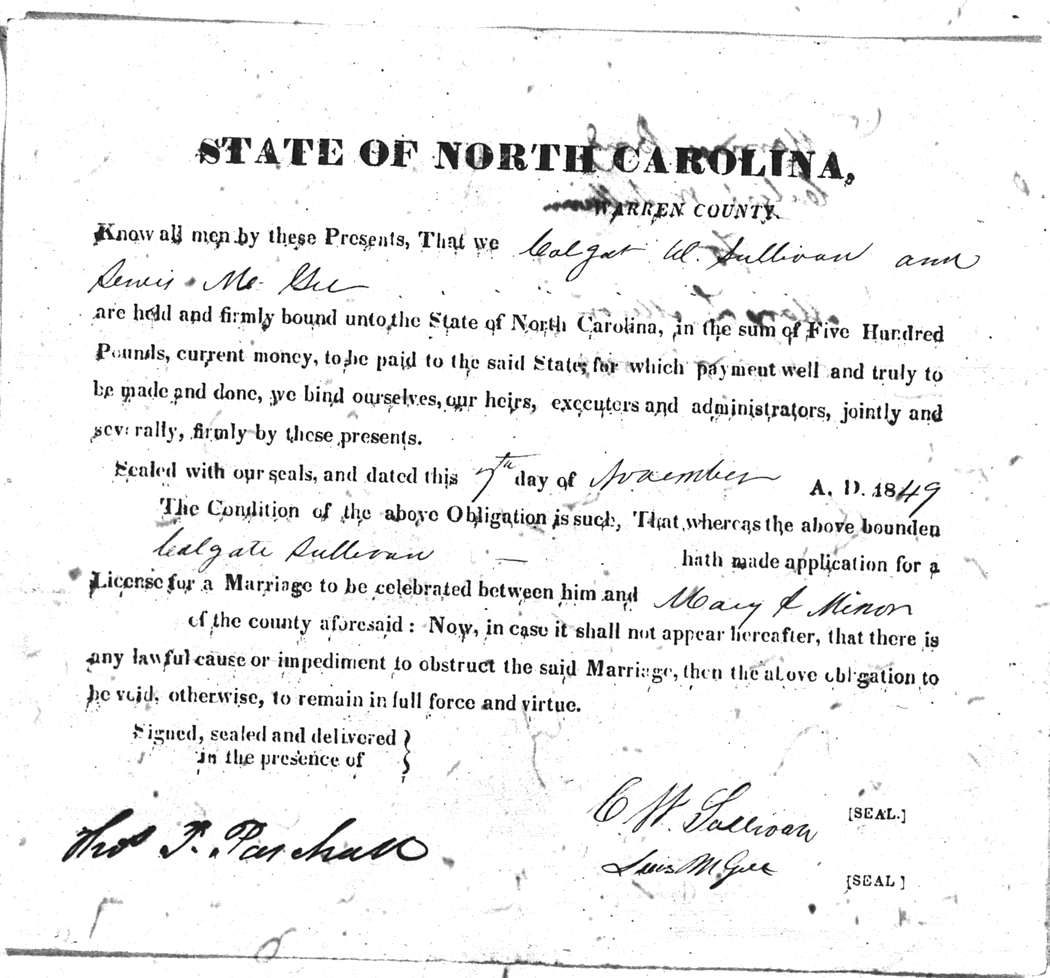 STATE OF NORTH CAROLINA,
WARREN COUNTY.
Know all men by these Presents, That we Colgat W. Sullivan and
Lewis Mc Gee
are held and firmly bound unto the State of North Carolina, in the sum of Five Hundred
Pounds, current money, to be paid to the said State; for which payment well and truly to
be made and done, we bind ourselves, our heirs, executors and administrators, jointly and
severally, firmly by these presents.
Sealed with our seals, and dated this 7th day of November A. D. 1849
The Condition of the above Obligation is such, That whereas the above bounden
Colgate Sullivan — hath made application for a
License for a Marriage to be celebrated between him and Mary Minor
of the county aforesaid: Now, in case it shall not appear hereafter, that there is
any lawful cause or impediment to obstruct the said Marriage, then the above obligation to
be void, otherwise, to remain in full force and virtue.
Signed, sealed and delivered }
in the presence of
C W. Sullivan [SEAL.]
Thos P. Paschall
Lewis M Gee [SEAL]